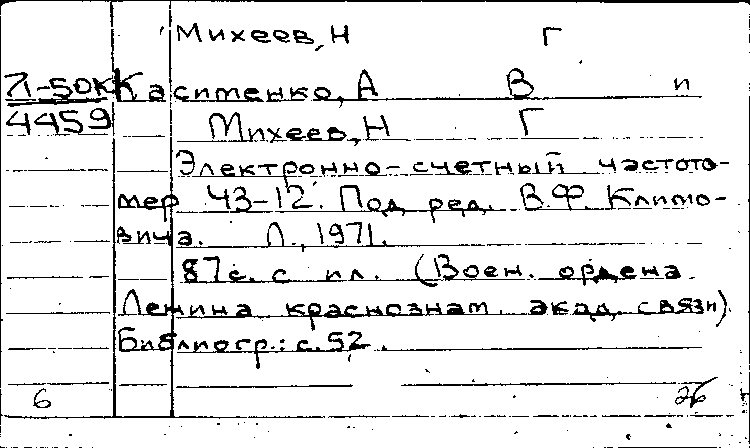 Михеев, Н Г
Л-50к Касименко, А В и
4459 Михеев, Н Г
Электронно-счетный частото-
мер ЧЗ-12. Под ред. В.Ф. Климо-
вича. Л., 1971.
87с. с ил. (Воен. ордена
Ленина краснознам. акад. связи).
Библиогр.: с. 52.
6 26